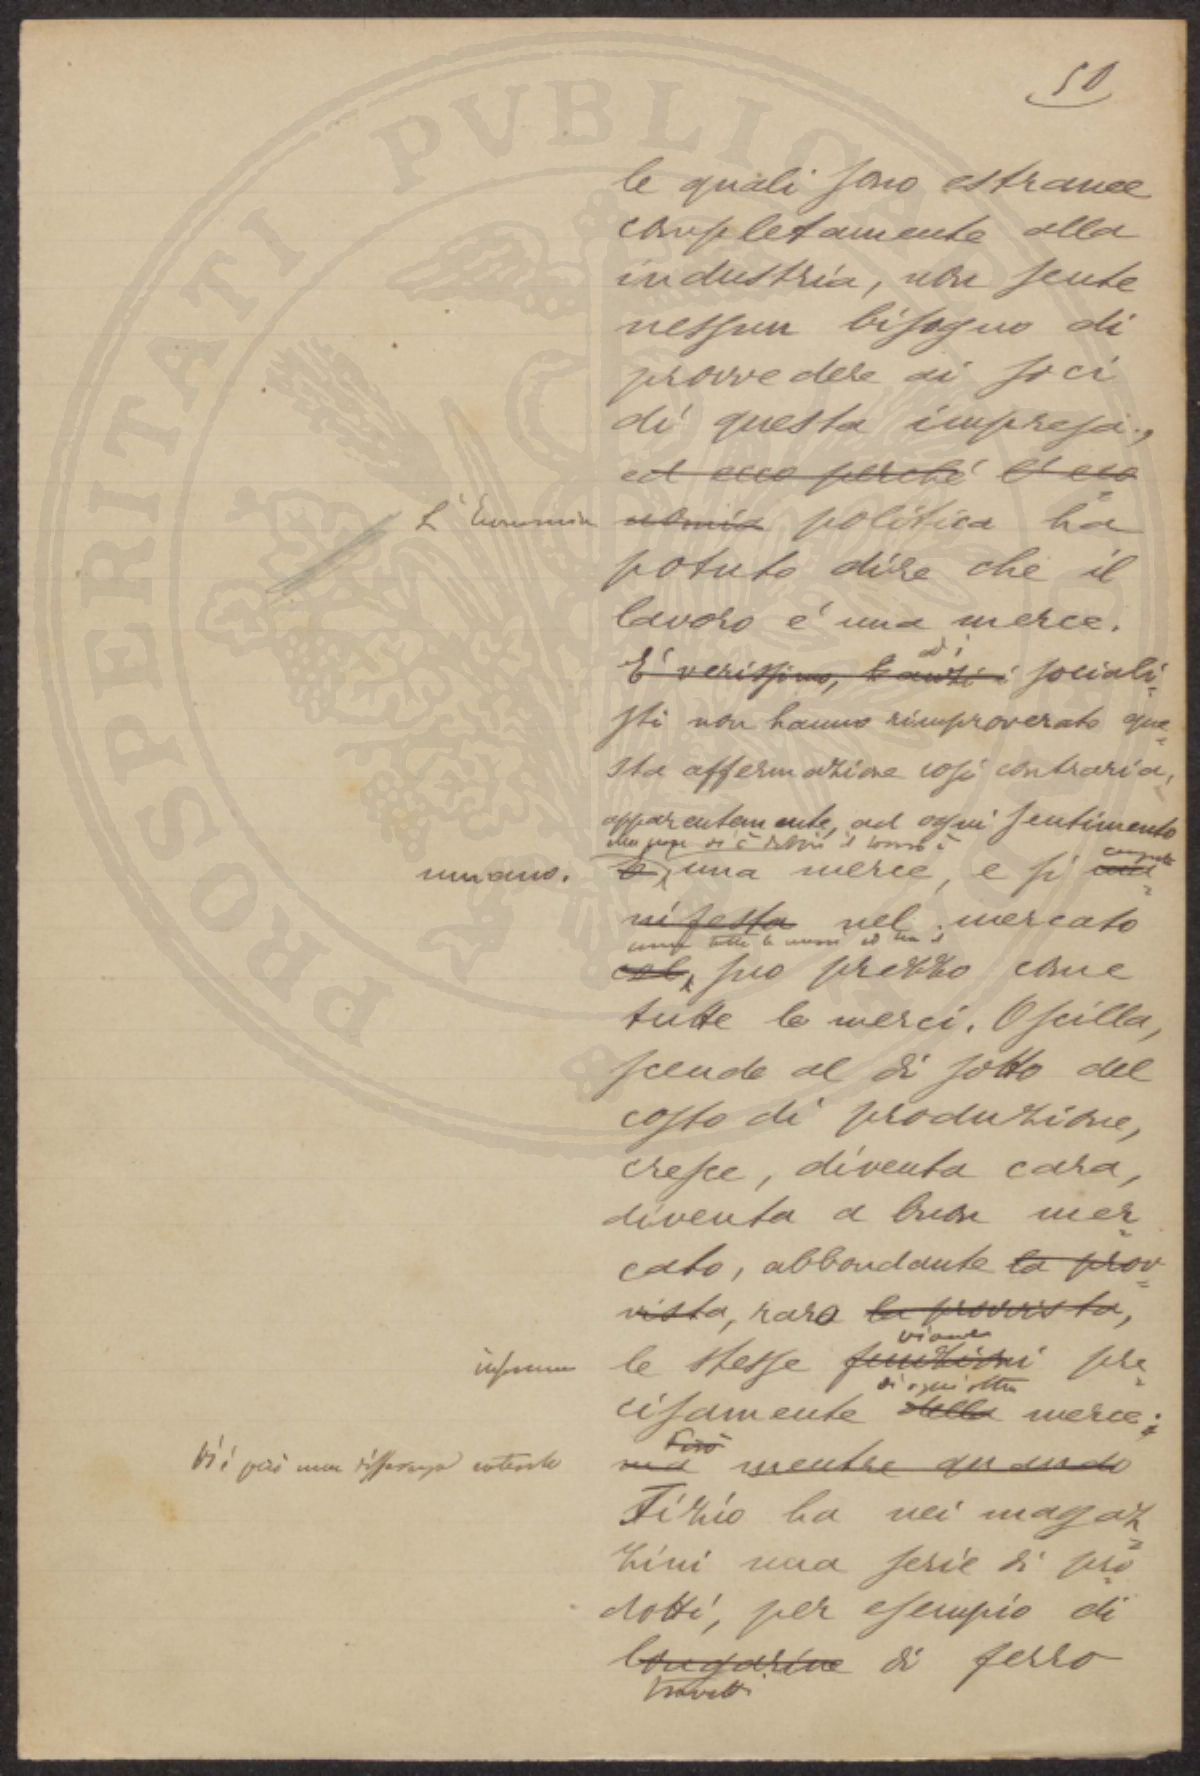 50
le quali sono estranee
completamente alla
industria, non sente
nessun bisogno di
provvedere ai soci
di questa impresa.,
ed ecco perché l'eco
L'Economia nomia politica ha
potuto dire che il
lavoro é una merce.
ed i
E' verissimo, e anzi i sociali-
sti non hanno rimproverato que-
sta affermazione cosí contraria,
apparentemente, ad ogni sentimento
umano. è una merce, e si
nifesta nel mercato
come tutte le merci ed ha il
col suo prezzo come
tutte le merci. Oscilla,
scende al di sotto del
costo di produzione,
cresce, diventa cara,
diventa a buon mer-
cato, abbondante la prov-
vista, rara la provvista,
insomma le stesse funzioni pre-
di ogni altra
cisamente della merce;
Vi é però una differenza ma mentre quando
Tizio ha nei magaz-
zini una serie di pro-
dotti, per esempio di
longarine di ferro
travetti
PROSPERITATI PVBLICAE